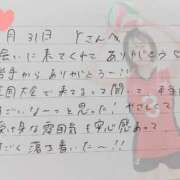 月31日 Yさんへ
会いに来てくれてありがとう♡
岩手からありがとうー!!
全国大会で来てるって聞いて、
すごいなーっと思った!やさしくて
雰囲気も安心感あって
すごく落ち着いた〜!!